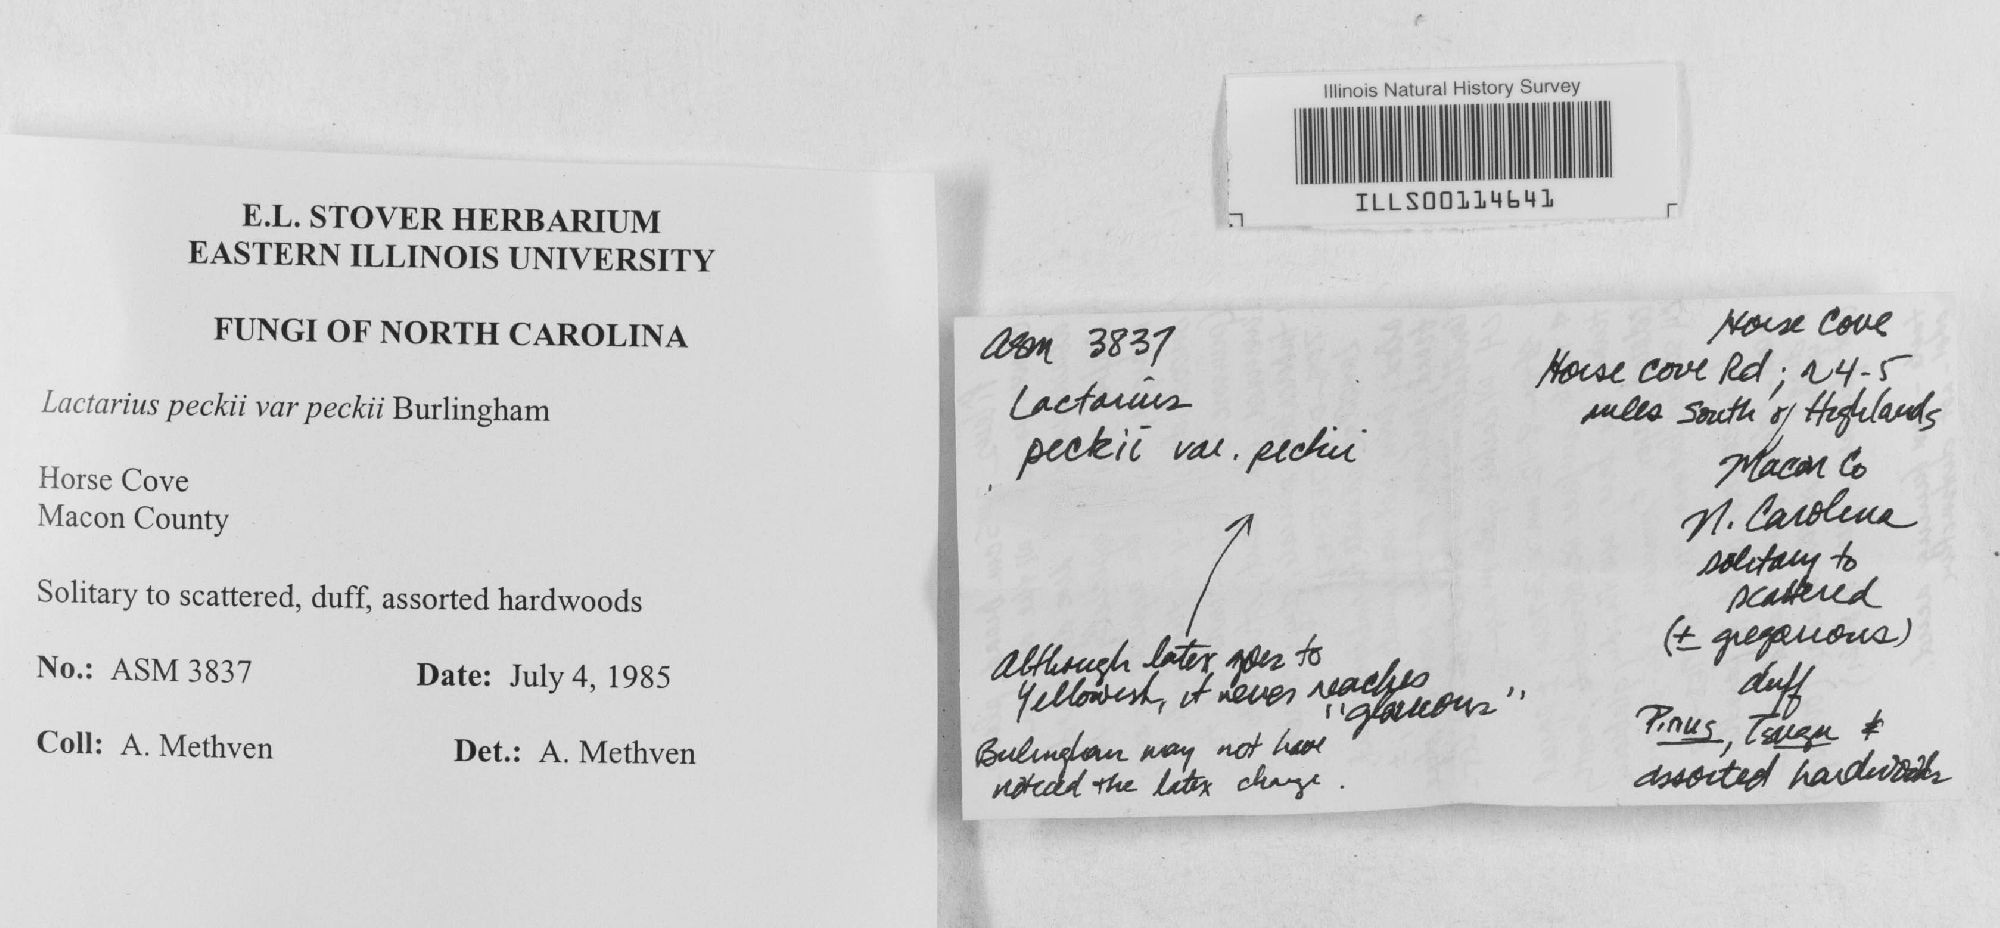 E.L. STOVER HERBARIUM
EASTERN ILLINOIS UNIVERSITY
FUNGI OF NORTH CAROLINA
Lactarius peckii var peckii Burlingham
Horse Cove
Macon County
Solitary to scattered, duff, assorted hardwoods
No.: ASM 3837 Date: July 4, 1985
Coll: A. Methven Det.: A. Methven
Illinois Natural History Survey
ILLS00114641
ASM 3837
Lactarius
peckii var. peckii
Although latex goes to
yellowish, it never reaches
Burlingham may not have
noticed the latex change.
Horse Cove
Horse Cove Rd; ~4-5
miles south of Highlands
Macon Co
N. Carolina
solitary to
scattered
(± gregarious)
duff
Pinus, Tsuga &
assorted hardwoods